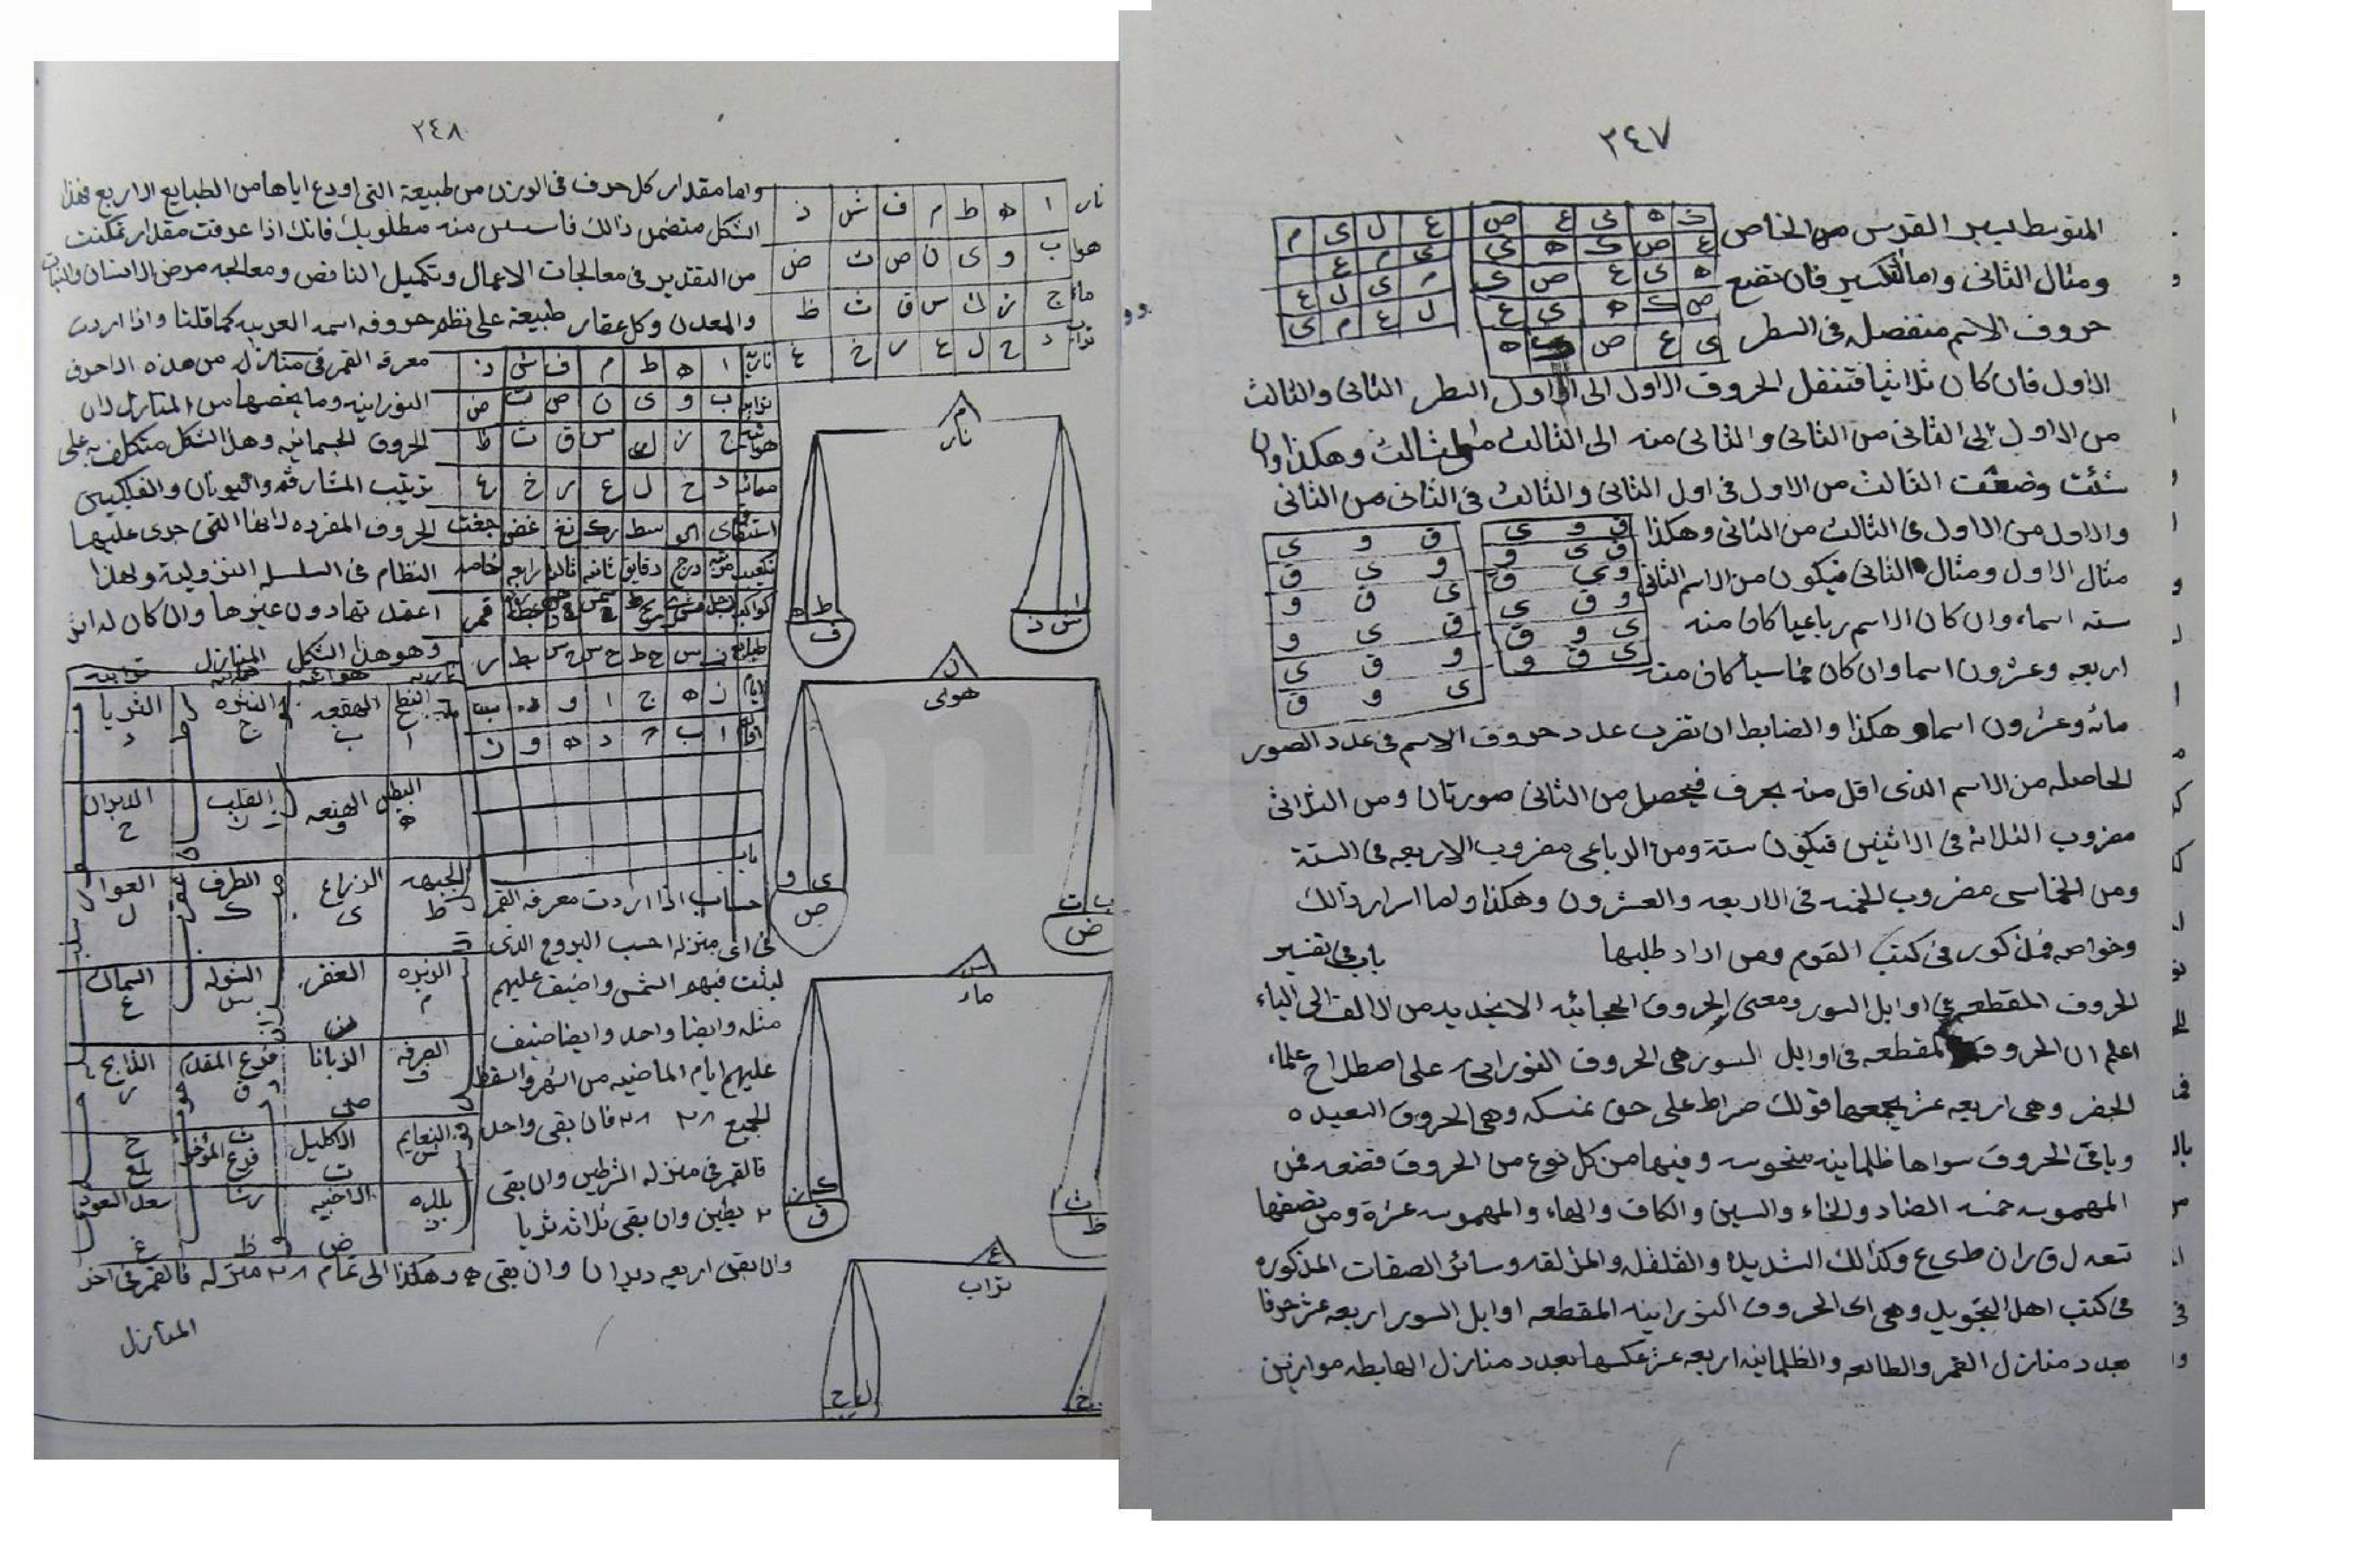 ٣٤٧
المتوسط بين القدس من الخاص
ك ه ى ع ص
ع ص ك ه ى
ه ى ع ص ك
ص ك ه ى ع
ى ع ص ك ه
ع ل ى م
ى م ع
م ى ل ع
ل ع م ى
ومثال الثانى واما التكسير فان تضع
حروف الاسم منفصله فى السطر
الاول فان كان ثلاثيا فتنقل الحروف الاول الى اول السطر الثانى والثالث
من الاول الى الثانى من الثانى والثانى منه الى الثالث وهكذا وان
شئت وضعت الثالث من الاول فى اول الثانى والثالث فى الثانى من الثانى
والاول من الاول فى الثالث من الثانى وهكذا
مثال الاول ومثال الثانى فيكون من الاسم الثانى
سته اسماء وان كان الاسم رباعيا كان منه
اربعه وعشرون اسما وان كان خماسيا كان منه
ق و ى
ق ى و
و ى ق
و ق ى
ى و ق
ى ق و
ق و ى
و ى ق
ى ق و
ق ى و
و ق ى
ى و ق
مائه وعشرون اسما وهكذا والضابط ان تضرب عدد حروف الاسم فى عدد الصور
الحاصله من الاسم الذى اقل منه بحرف فيحصل من الثانى صورتان ومن الثلاثى
مضروب الثلاثه فى الاثنين فيكون ستة ومن الرباعى مضروب الاربعه فى الستة
ومن الخماسى مضروب الخمسه فى الاربعه والعشرون وهكذا ولما اسرار ذالك
وخواصه فمذكور فى كتب القوم ومن اراد طلبها باب فى تفسير
الحروف المقطعه فى اوايل السور ومعنى الحروف الهجائيه الابجديه من الالف الى الياء
اعلم ان الحروف المقطعه فى اوايل السور هى الحروف النورانيه على اصطلاح علماء
الجفر وهى اربعه عشر يجمعها قولك صراط على حق نمسكه وهى الحروف السعيده
وباقى الحروف سواها ظلمانيه منحوسه وفيها من كل نوع من الحروف فضعه فمن
المهموسه خمسه الصاد والحاء والسين والكاف والهاء والمهموسه عشرة ومن نصفها
تعدل ق ران ط ى ع وكذالك الشديده والقلقله والمذلقه وسائر الصفات المذكوره
فى كتب اهل التجويد وهى اى الحروف النورانيه المقطعه اوايل السور اربعه عشر حرفا
بعدد منازل القمر والطالعه والظلمانيه اربعه عشر عكسها بعدد منازل الهابطه موازين
٣٤٨
نار ا ه ط م ف ش ذ
هوا ب و ى ن ص ت ض
ماء ج ز ك س ق ث ظ
تراب د ح ل ع ر خ غ
واما مقدار كل حرف فى الوزن من طبيعة التى اودع اياها من الطبايع الاربع فهذا
الشكل متضمن ذالك فاسس منه مطلوبك فانك اذا عرفت مقدار تمكنت
من التقدير فى معالجات الاعمال وتكميل الناقص ومعالجه مرض الانسان والنبات
والمعدن وكل عقار طبيعة على نظم حروفه اسمه العربيه كما قلنا واذا اردت
معرفة القمر فى منازله من هذه الاحرف
النورانيه وما يخصها من المنازل لان
الحروف الجسمانيه وهذا الشكل متكلف به على
ترتيب المشارقه واليونان والفلكيين
الحروف المفرده لانها التى جرى عليها
النظام فى السلسله النزوليه ولهذا
اعقد تهادون غيرها وان كان له اثر
وهو هذا الشكل المنازل
ناريه ا ه ط م ف ش ذ
ترابيه ب و ى ن ص ت ض
هوائيه ج ز ك س ق ث ظ
مائيه د ح ل ع ر خ غ
مرتبه درج دقايق ثانيه ثالثه رابعه خامسه
كواكب زحل مشترى مريخ شمس زهره عطارد قمر
ايام ز ه ج ا و
ا ب ج د ه و ز
النطح ا
الهقعه ب
النثره ج
الثريا د
البطين ه
الهنعه و
القلب ز
الدبران ح
الجبهه ط
الذراع ى
الطرف ك
العوا ل
الزبره م
الغفر ن
الشوله س
السماك ع
الصرفه ف
الزبانا ص
فرغ المقدم ق
الذابح ر
النعايم ش
الاكليل ت
فرغ المؤخر ث
بلع خ
بلده ذ
الاخبيه ض
رشا ظ
سعد السعود غ
باب
حساب اذا اردت معرفه القمر
فى اى منزله احسب البروج الذى
لبثت فيهم الشمس واضيف عليهم
مثله وايضا واحد وايضا ضيف
عليهم ايام الماضيه من الشهر واسقط
الجميع ٢٨ ٢٨ فان بقى واحد
فالقمر فى منزله الشرطين وان بقى
٢ بطين وان بقى ثلاثه ثريا
وان بقى اربعه دبران وان بقى ٥ وهكذا الى تمام ٢٨ منزله فالقمر فى اخر
المنازل
م
نار
ط ه
ف
ا
ش ذ
ن
هوى
ى و
ص
ب ت
ض
س
ماء
ك ز
ق
ث
ظ
ع
تراب
ل ح
خ